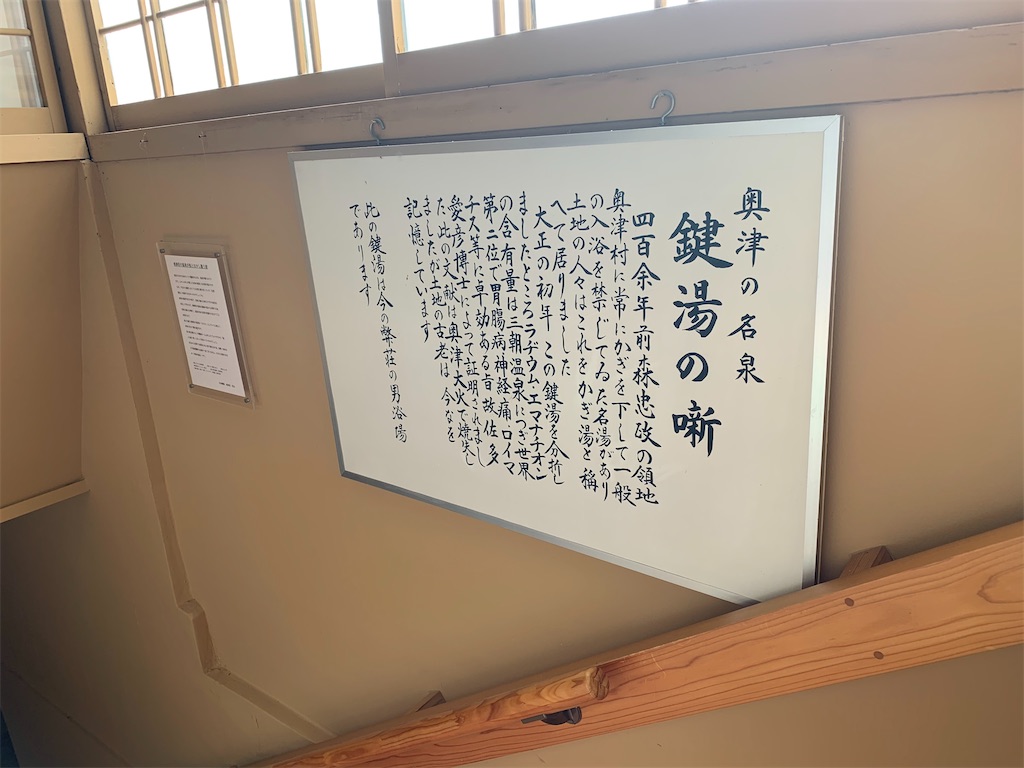 奥津の名泉
鍵湯の噺
四百余年前森忠政の領地
奥津村に常にかぎを下して一般
の入浴を禁じてゐた名湯があり
土地の人々はこれをかぎ湯と稱
へて居りました
大正の初年この鍵湯を分析し
ましたところラヂウム・エマナチオン
の含有量は三朝温泉につぎ世界
第二位で胃腸病神経痛ロイマ
チス等に卓効ある旨故佐多
愛彦博士によって証明されまし
た此の文献は奥津大火で焼失し
ましたが土地の古老は今なを
記憶しています
此の鍵湯は今の弊荘の男浴場
であります